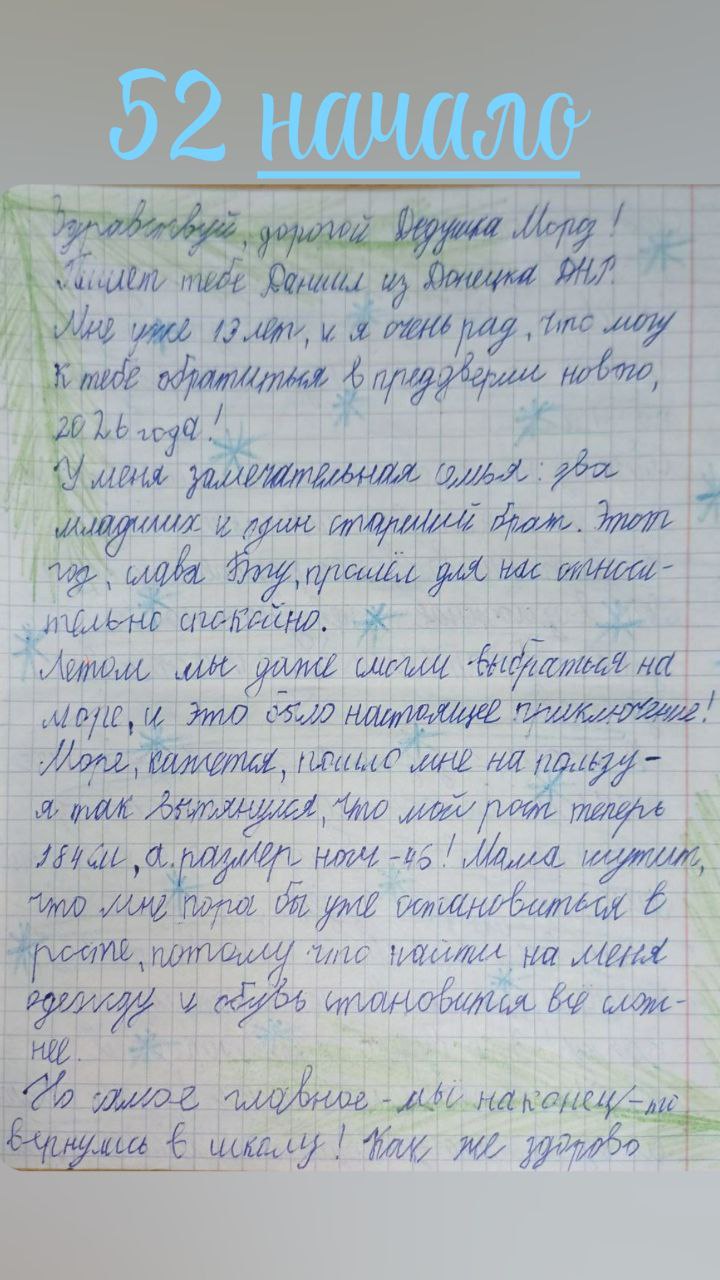 52 начало
Здравствуй, дорогой Дедушка Мороз!
Пишет тебе Даниил из Донецка ДНР.
Мне уже 13 лет, и я очень рад, что могу
к тебе обратиться в преддверии нового,
2026 года!
У меня замечательная семья: два
младших и один старший брат. Этот
год, слава Богу, прошёл для нас относи-
тельно спокойно.
Летом мы даже смогли выбраться на
море, и это было настоящее приключение!
Море, кажется, пошло мне на пользу -
я так вытянулся, что мой рост теперь
184 см, а размер ноги - 46! Мама шутит,
что мне пора бы уже остановиться в
росте, потому что найти на меня
одежду и обувь становится всё слож-
нее.
Но самое главное - мы наконец-то
вернулись в школу! Как же здорово